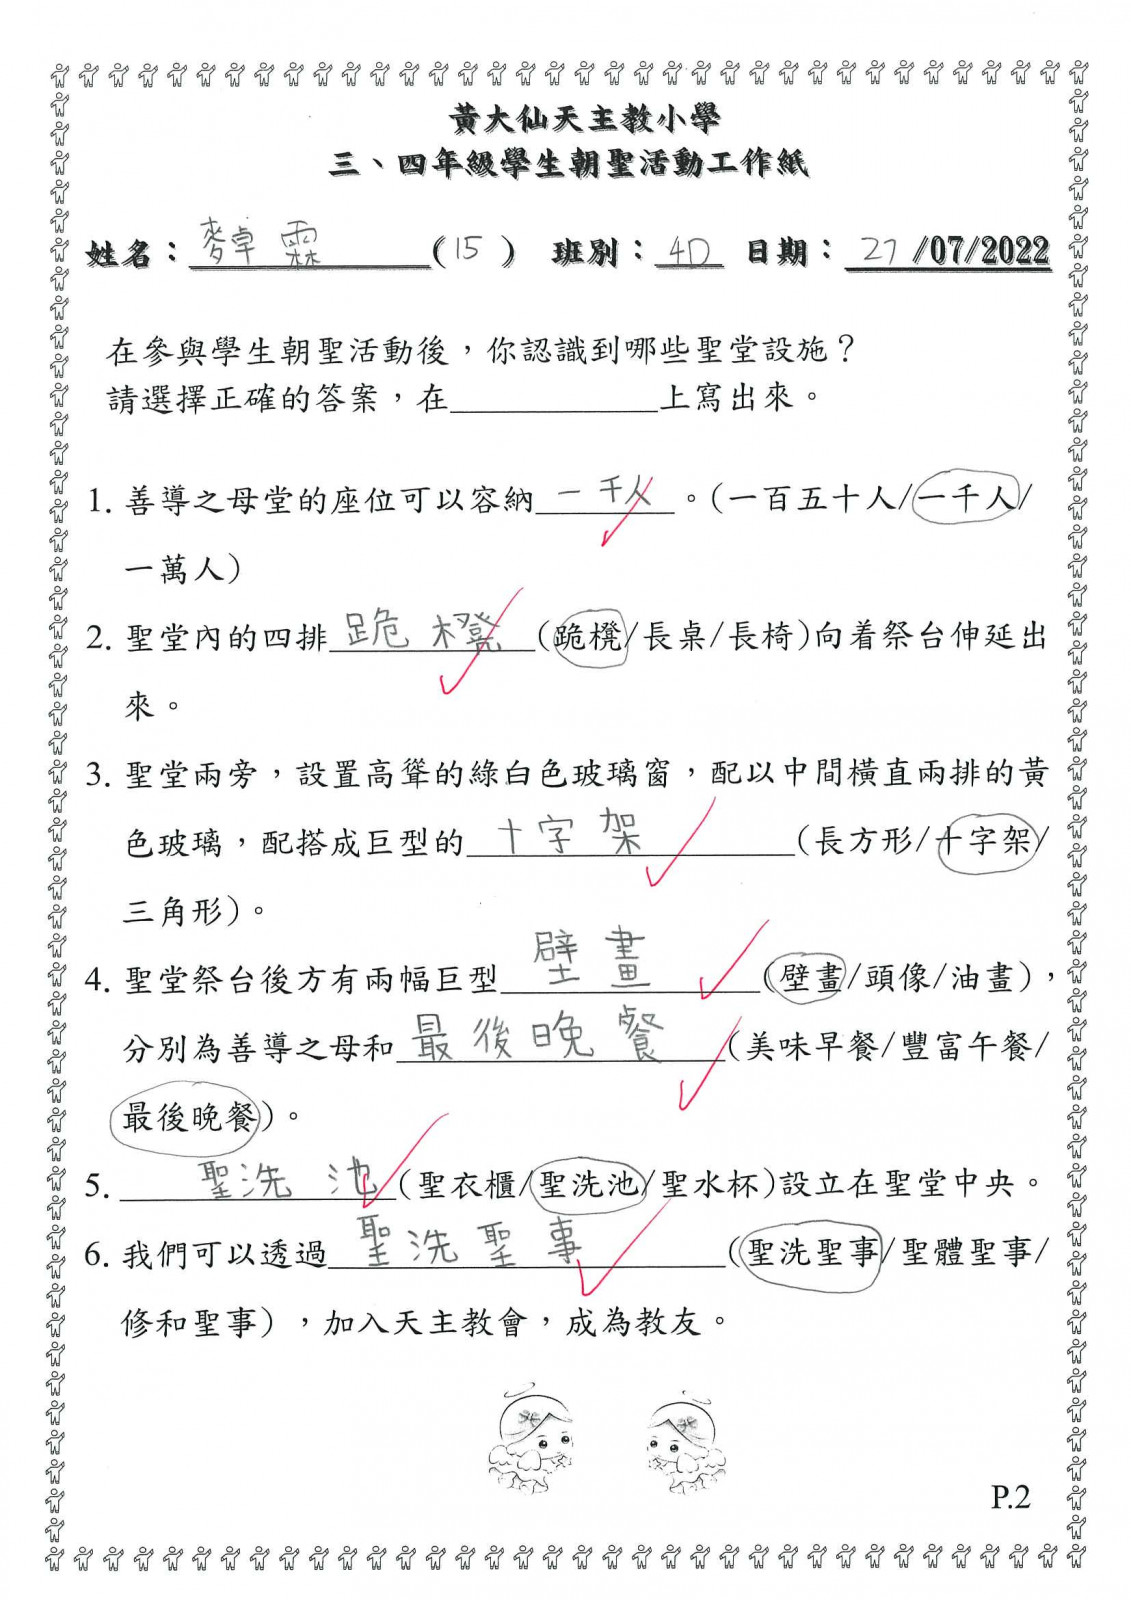 黃大仙天主教小學
三、四年級學生朝聖活動工作紙
姓名：麥卓霖(15) 班別：4D 日期：27/07/2022
在參與學生朝聖活動後，你認識到哪些聖堂設施？
請選擇正確的答案，在____________上寫出來。
1. 善導之母堂的座位可以容納一千人。(一百五十人/一千人/
一萬人)
2. 聖堂內的四排跪櫈(跪櫈/長桌/長椅)向着祭台伸延出
來。
3. 聖堂兩旁，設置高聳的綠白色玻璃窗，配以中間橫直兩排的黃
色玻璃，配搭成巨型的十字架(長方形/十字架/
三角形)。
4. 聖堂祭台後方有兩幅巨型壁畫(壁畫/頭像/油畫)，
分別為善導之母和最後晚餐(美味早餐/豐富午餐/
最後晚餐)。
5. 聖洗池(聖衣櫃/聖洗池/聖水杯)設立在聖堂中央。
6. 我們可以透過聖洗聖事(聖洗聖事/聖體聖事/
修和聖事)，加入天主教會，成為教友。
P.2